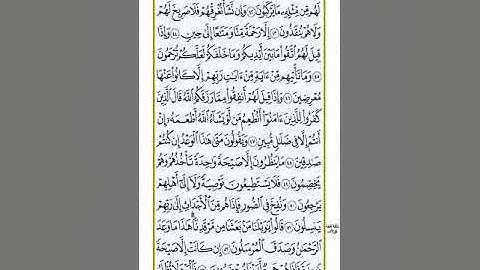 لَهُم مِّن مِّثْلِهِۦ مَا يَرْكَبُونَ ٤٢ وَإِن نَّشَأْ نُغْرِقْهُمْ فَلَا صَرِيخَ لَهُمْ
وَلَا هُمْ يُنقَذُونَ ٤٣ إِلَّا رَحْمَةً مِّنَّا وَمَتَٰعًا إِلَىٰ حِينٍ ٤٤ وَإِذَا
قِيلَ لَهُمُ ٱتَّقُوا۟ مَا بَيْنَ أَيْدِيكُمْ وَمَا خَلْفَكُمْ لَعَلَّكُمْ تُرْحَمُونَ
٤٥ وَمَا تَأْتِيهِم مِّنْ ءَايَةٍ مِّنْ ءَايَٰتِ رَبِّهِمْ إِلَّا كَانُوا۟ عَنْهَا
مُعْرِضِينَ ٤٦ وَإِذَا قِيلَ لَهُمْ أَنفِقُوا۟ مِمَّا رَزَقَكُمُ ٱللَّهُ قَالَ ٱلَّذِينَ
كَفَرُوا۟ لِلَّذِينَ ءَامَنُوٓا۟ أَنُطْعِمُ مَن لَّوْ يَشَآءُ ٱللَّهُ أَطْعَمَهُۥٓ إِنْ
أَنتُمْ إِلَّا فِى ضَلَٰلٍ مُّبِينٍ ٤٧ وَيَقُولُونَ مَتَىٰ هَٰذَا ٱلْوَعْدُ إِن كُنتُمْ
صَٰدِقِينَ ٤٨ مَا يَنظُرُونَ إِلَّا صَيْحَةً وَٰحِدَةً تَأْخُذُهُمْ وَهُمْ
يَخِصِّمُونَ ٤٩ فَلَا يَسْتَطِيعُونَ تَوْصِيَةً وَلَآ إِلَىٰٓ أَهْلِهِمْ
يَرْجِعُونَ ٥٠ وَنُفِخَ فِى ٱلصُّورِ فَإِذَا هُم مِّنَ ٱلْأَجْدَاثِ إِلَىٰ رَبِّهِمْ
يَنسِلُونَ ٥١ قَالُوا۟ يَٰوَيْلَنَا مَنۢ بَعَثَنَا مِن مَّرْقَدِنَا ۜ هَٰذَا مَا وَعَدَ
ٱلرَّحْمَٰنُ وَصَدَقَ ٱلْمُرْسَلُونَ ٥٢ إِن كَانَتْ إِلَّا صَيْحَةً